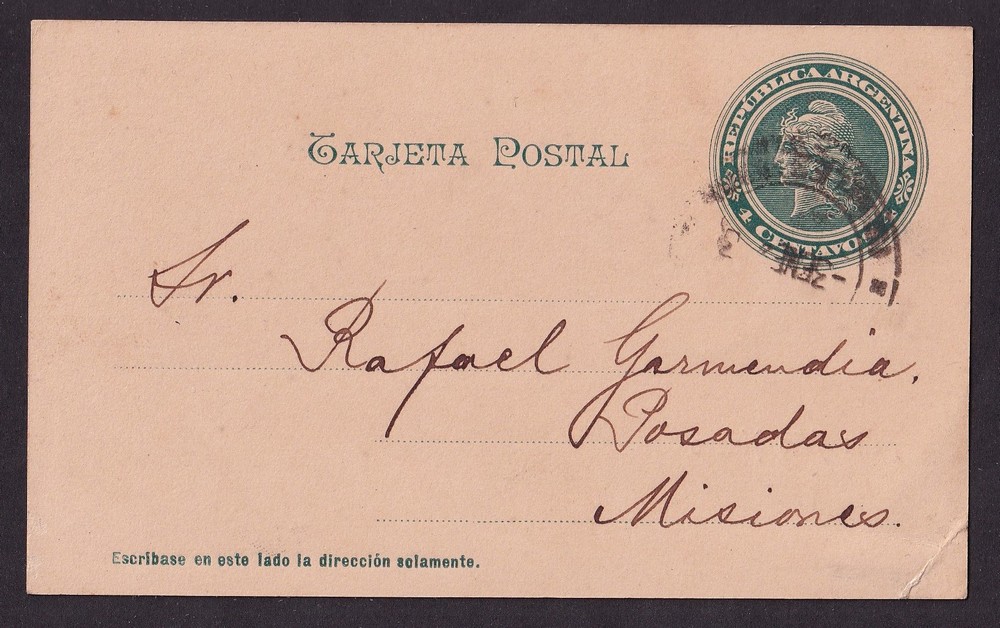 REPÚBLICA ARGENTINA
4 CENTAVOS
TARJETA POSTAL
Sr.
Rafael Garmendia.
Posadas
Misiones.
Escríbase en este lado la dirección solamente.